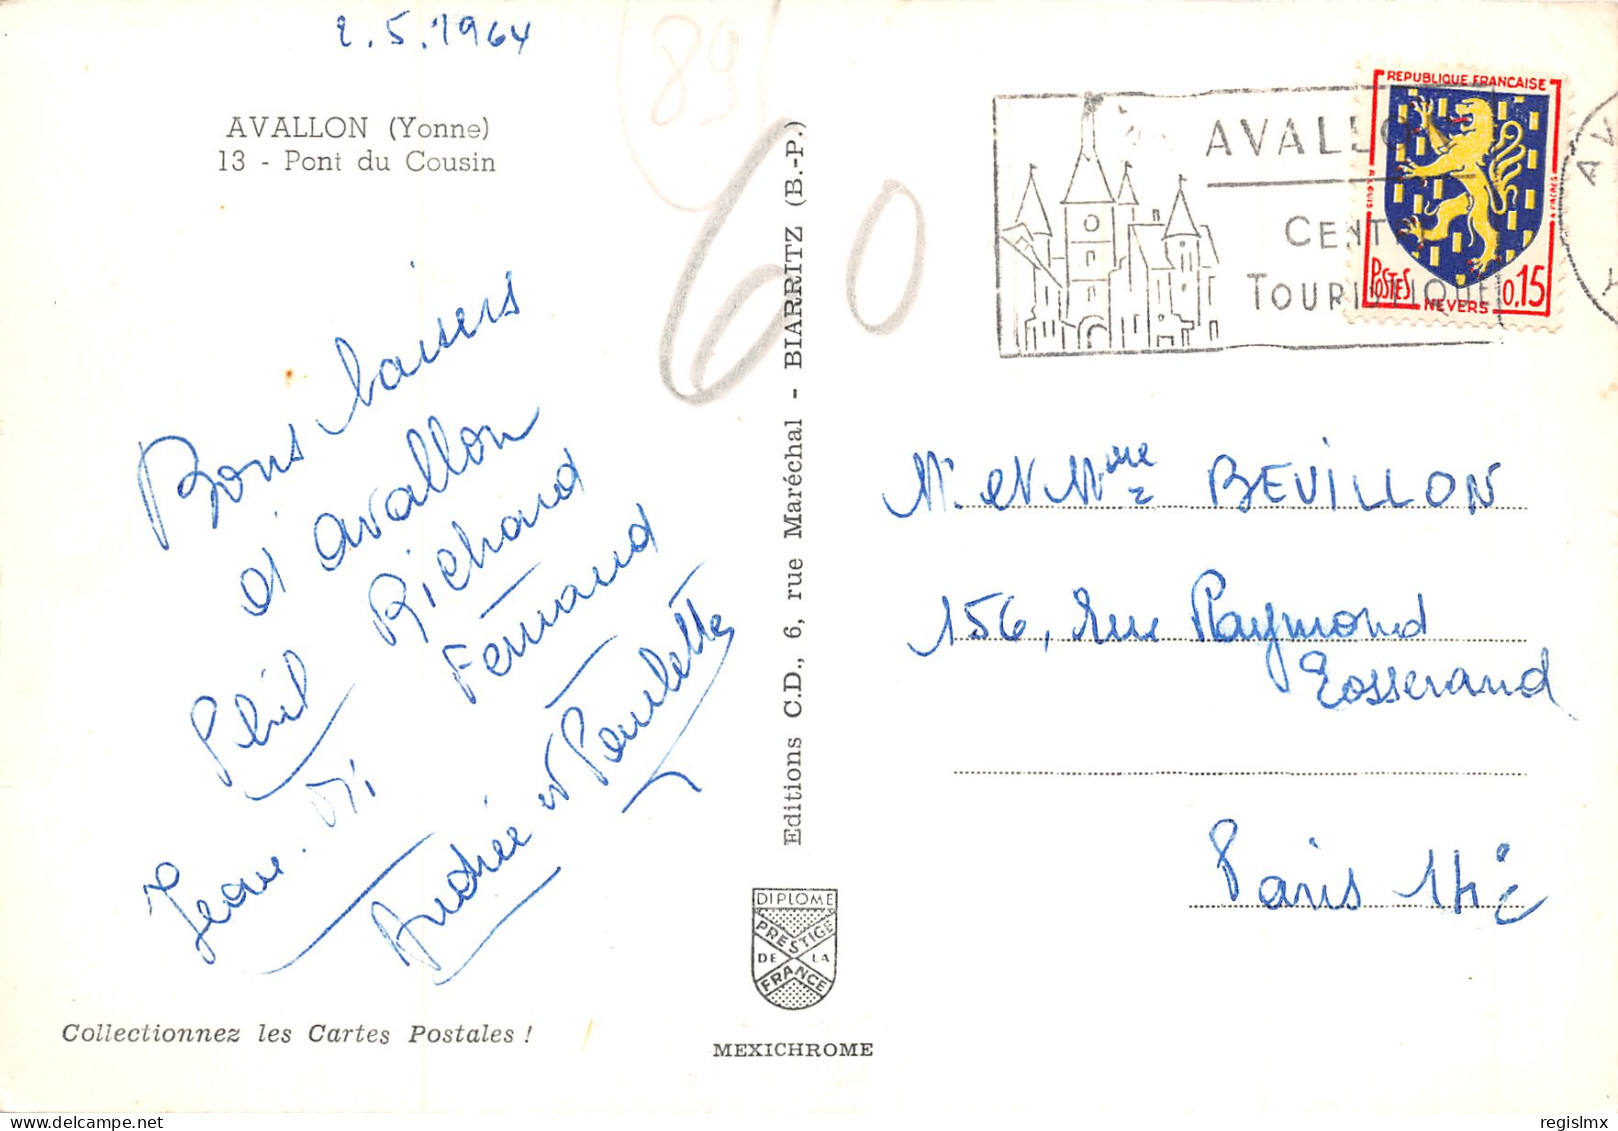 2.5.1964
89
60
AVALLON (Yonne)
13 - Pont du Cousin
Bons baisers
d'avallon
Richard
Fernand
Phil
Jean. Mi
Andrée et Paulette
Collectionnez les Cartes Postales !
Editions C.D., 6, rue Maréchal - BIARRITZ (B.-P.)
DIPLOME
PRESTIGE
DE LA
FRANCE
MEXICHROME
AVALLON
CENTRE
TOURISTIQUE
REPUBLIQUE FRANCAISE
POSTES
0,15
NEVERS
AV
Mr et Mme BEVILLON
156, rue Raymond
Losserand
Paris 14e
regislmx